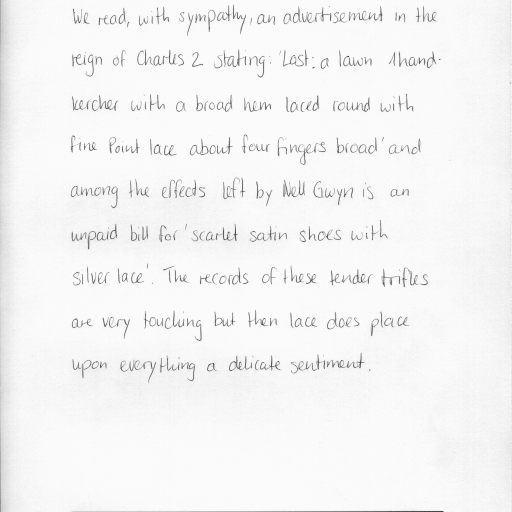 We read, with sympathy, an advertisement in the
reign of Charles 2 stating: 'Lost: a lawn hand-
kercher with a broad hem laced round with
fine Point lace about four fingers broad' and
among the effects left by Nell Gwyn is an
unpaid bill for 'scarlet satin shoes with
silver lace'. The records of these tender trifles
are very touching but then lace does place
upon everything a delicate sentiment.